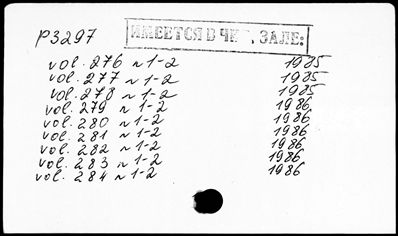 P3297
ИМЕЕТСЯ В ЧИТ. ЗАЛЕ:
vol. 276 n 1-2 1985
vol. 277 n 1-2 1985
vol. 278 n 1-2 1985
vol. 279 n 1-2 1986
vol. 280 n 1-2 1986
vol. 281 n 1-2 1986
vol. 282 n 1-2 1986
vol. 283 n 1-2 1986
vol. 284 n 1-2 1986